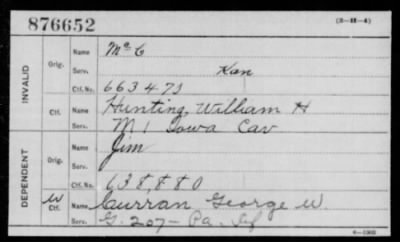 876652
(3-H-4)
INVALID
Orig.
Name Mc C
Serv. Kan
Ctf. No. 663473
Ctf.
Name Hunting, William H
Serv. M 1 Iowa Cav
DEPENDENT
Orig.
Name Jim
Serv.
Ctf. No. 638,880
W
Ctf.
Name Curran George W.
Serv. G. 207- Pa. Inf